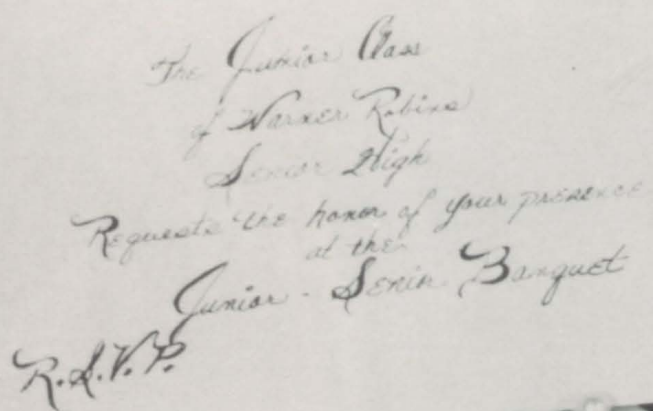 The Junior Class
of Warner Robins
Senior High
Requests the honor of your presence
at the
Junior - Senior Banquet
R.S.V.P.